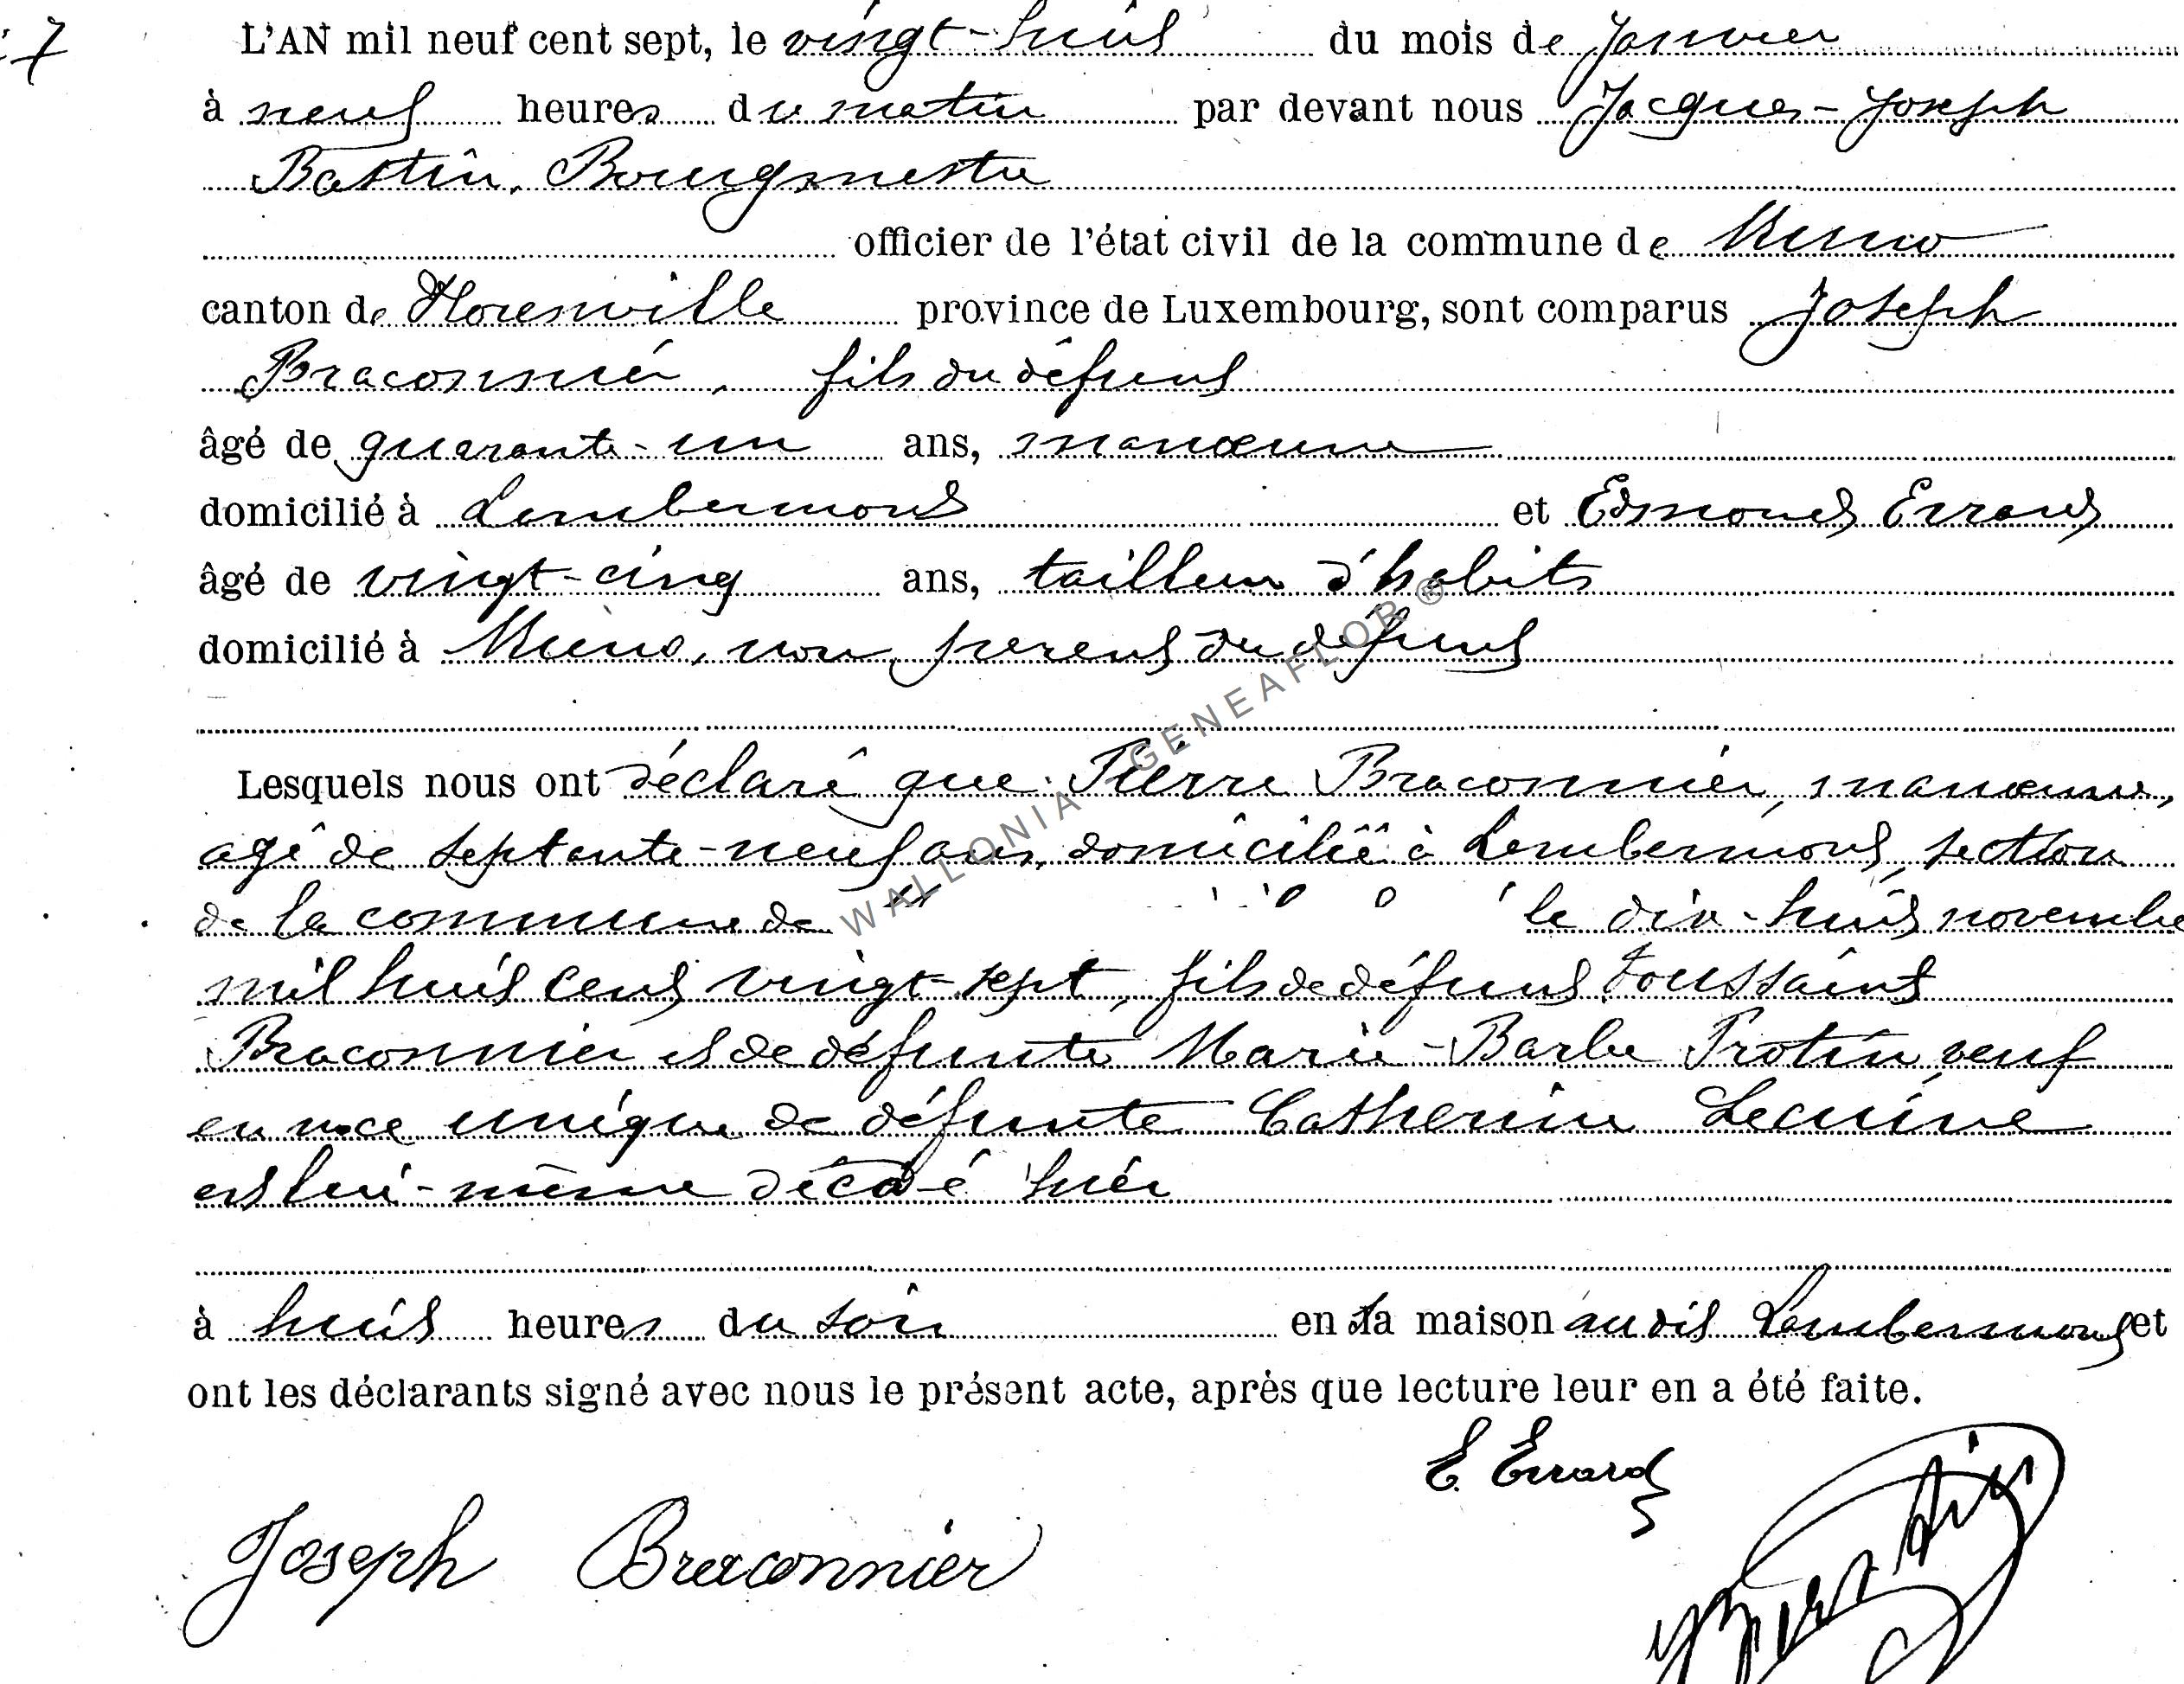 7
L'AN mil neuf cent sept, le vingt-huit du mois de Janvier
à neuf heures du matin par devant nous Jacques-Joseph
Bastin, Bourgmestre
officier de l'état civil de la commune de Muno
canton de Florenville province de Luxembourg, sont comparus Joseph
Braconnier, fils du défunt
âgé de quarante-un ans, manœuvre
domicilié à Lambermont et Edmond Errard
âgé de vingt-cinq ans, tailleur d'habits
domicilié à Muno, non parent du défunt
Lesquels nous ont déclaré que Pierre Braconnier, manœuvre,
agé de septante-neuf ans, domicilié à Lambermont, section
de la commune de le dix-huit novembre
mil huit cent vingt-sept, fils de défunt Toussaint
Braconnier et de défunte Marie-Barbe Protin, veuf
en noce unique de défunte Catherine
est lui-même décédé hier
à huit heures du soir en sa maison audit Lambermont et
ont les déclarants signé avec nous le présent acte, après que lecture leur en a été faite.
E. Errard
Joseph Braconnier
JJBastin
WALLONIA - GENEAFLOR ®